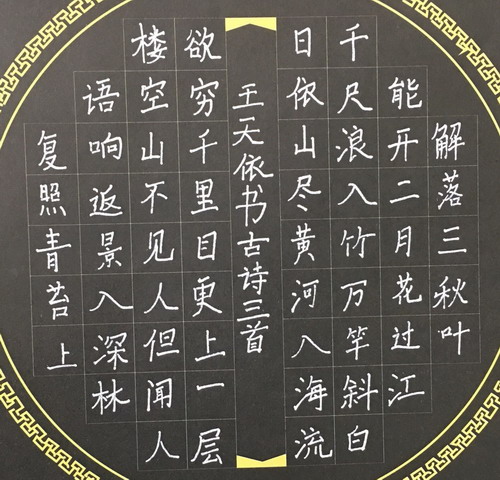 解落三秋叶
能开二月花过江
千尺浪入竹万竿斜白
日依山尽黄河入海流
王天依书古诗三首
欲穷千里目更上一层
楼空山不见人但闻人
语响返景入深林
复照青苔上